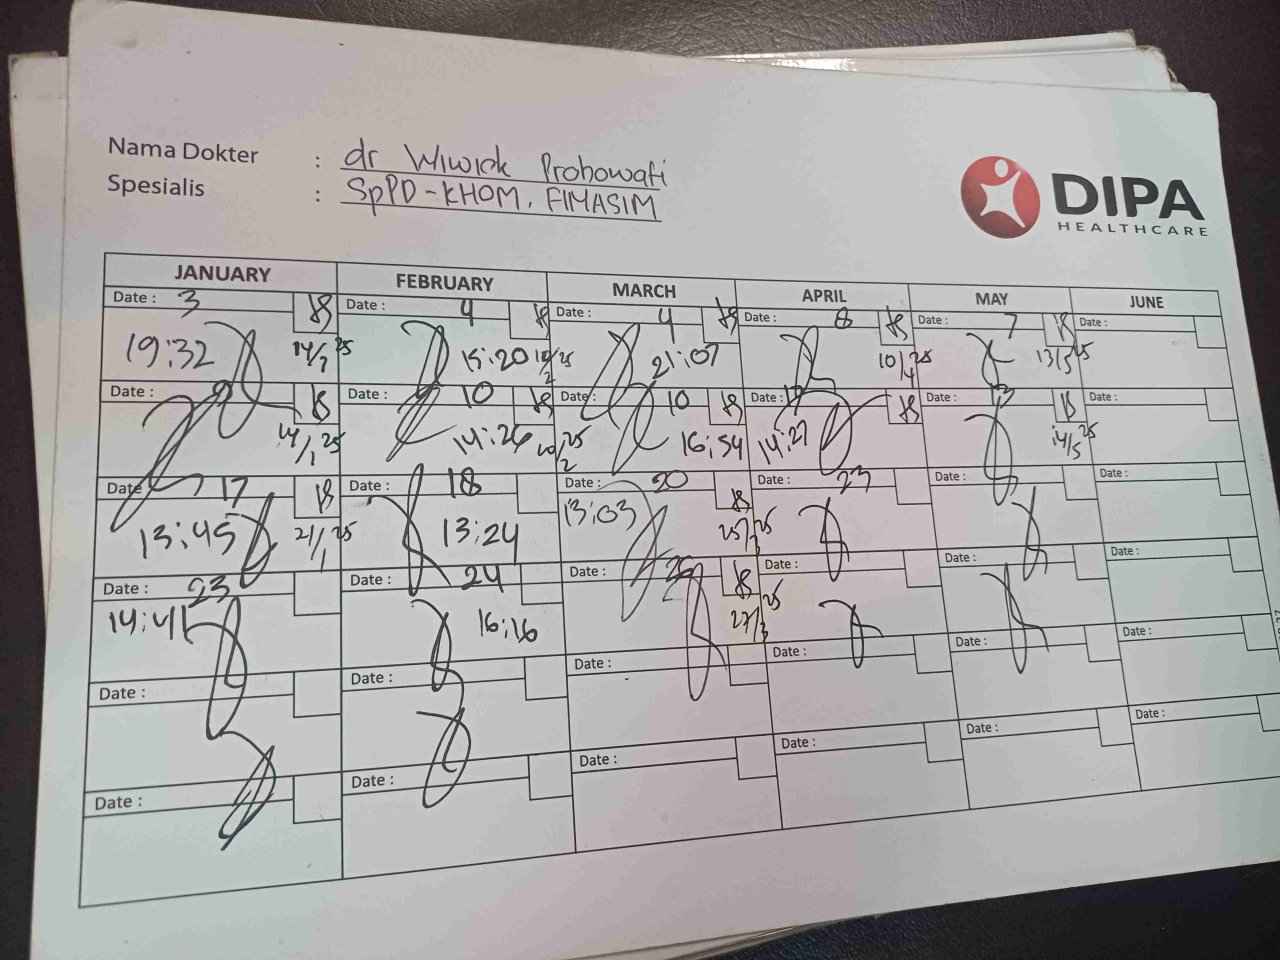 Nama Dokter : dr Wiwick Probowati
Spesialis : SpPD-KHOM, FIMASIM
DIPA
HEALTHCARE
JANUARY FEBRUARY MARCH APRIL MAY JUNE
Date : 3 Date : 4 Date : 4 Date : 8 Date : 7 Date :
19:32 14/1 25 15:20 10/2 25 21:07 10/4 25 13/5 25
Date : 9 Date : 10 Date : 10 Date : 17 Date : 13 Date :
14/1 25 14:26 20/2 25 16:54 14:27 14/5 25
Date : 17 Date : 18 Date : 20 Date : 23 Date : Date :
13:45 21/1 25 13:24 13:03 25/3 25
Date : 23 Date : 24 Date : 26 Date : Date : Date :
14:41 16:16 27/3 25
Date : Date : Date : Date : Date : Date :
Date : Date : Date : Date : Date : Date :